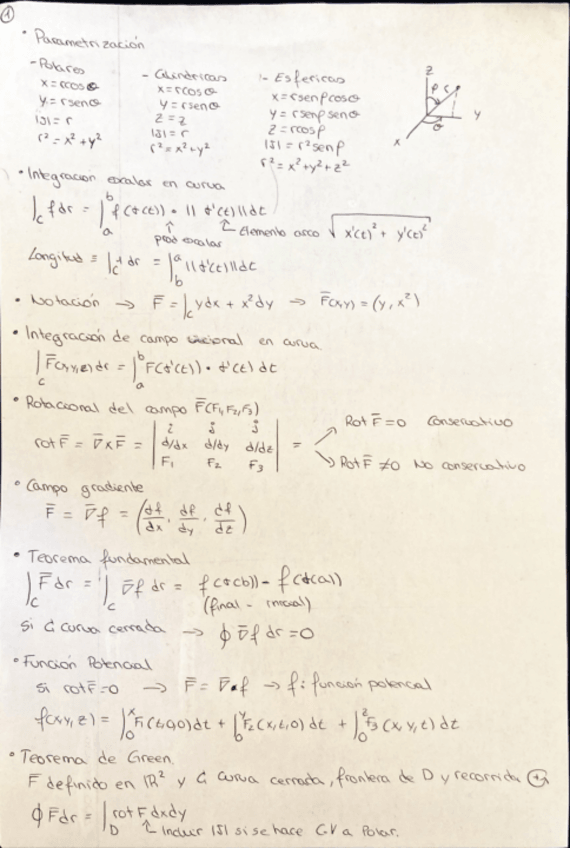 ①
• Parametrización
- Polares
x=rcosθ
y=rsenθ
|J|=r
r²=x²+y²
- Cilíndricas
x=rcosθ
y=rsenθ
z=z
|J|=r
r²=x²+y²
- Esfericas
x=rsenρcosθ
y=rsenρsenθ
z=rcosρ
|J|=r²senρ
r²=x²+y²+z²
z
ρ r
y
θ
x
• Integracion escalar en curva
∫_C f dr = ∫_a^b f(σ(t)) • ||σ'(t)||dt
↑ prod escalar
↑ Elemento arco √x'(t)² + y'(t)²
Longitud ≡ ∫_C 1 dr = ∫_b^a ||σ'(t)||dt
• Notación → F̄ = ∫_C ydx + x²dy → F̄(x,y) = (y, x²)
• Integración de campo vectorial en curva
∫_C F̄(x,y,z)dr = ∫_a^b F(σ'(t)) • σ'(t) dt
• Rotacional del campo F̄(F₁,F₂,F₃)
rot F̄ = ∇̄xF̄ = | i j j |
| d/dx d/dy d/dz | =
| F₁ F₂ F₃ |
↗ Rot F̄=0 Conservativo
↘ Rot F̄ ≠0 No conservativo
• Campo gradiente
F̄ = ∇̄f = (df/dx, df/dy, df/dz)
• Teorema fundamental
∫_C F̄dr = ∫_C ∇̄f dr = f(σ(b)) - f(σ(a))
(final - inicial)
Si C curva cerrada → ∮ ∇̄f dr =0
• Función Potencial
si rot F̄=0 → F̄ = ∇̄•f → f: función potencial
f(x,y,z) = ∫_0^x F₁(t,0,0)dt + ∫_0^y F₂(x,t,0)dt + ∫_0^z F₃(x,y,t)dt
• Teorema de Green.
F̄ definido en ℝ² y C curva cerrada, frontera de D y recorrida ⊕
∮ F̄dr = ∫_D rot F dxdy
↑ Incluir |J| si se hace CV a Polar.